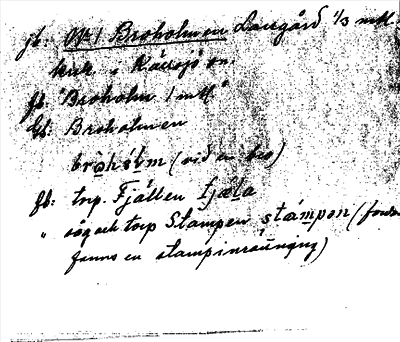 jb: № 1 Broholmen Lavgård 1/3 mtl.
kvk. Kåsjö sn.
jb "Broholm 1 mtl"
Gb: Broholmen
bròhó̲lm (vid en bro)
fb: torp. Fjällen fjæ̀l̲a
" såg och torp Stampen stámpən (forr
fanns en stampinrättning)